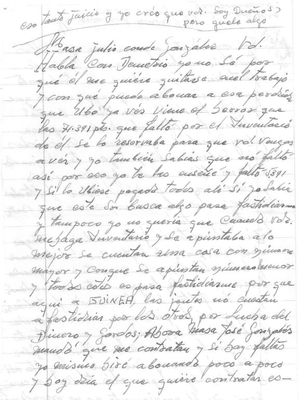 con tanto juicio y yo creo que vds. soy Dueños y
pero quelo algo
Masa julio conde González Vd.
Habla Con Demetrio yo no sé por
qué el me quiere quitarse en el trabajo
y con qué puedo abonar a esa perdida
que Ubo ya vés viene el borrór que
las 71.591 pts. que faltó por el Inventario
de él se lo reservaba para que vd. Vengas
a vér y yo también Sabías que no faltó
así por eso yo te las enseñé y faltó 5.391
y si lo Ubiese pagado todos allí si yo Sabía
que este sin busca algo para fastidiarme
y tampoco yo no quería que Cuando vds.
me haga Inventario y se apuntaba a lo
mejor se cuentan una cosa con número
mayor y conque se apuntan número menor
y todos esto es para fastidiarme por que
aquí a GUINEA las gentes no cuestan
a fastidiar por los otros, por lucha del
Dinero y Gordos; Ahora Masa José González
mandó que me contratan y si hay faltas
yo mismo Siré abonando poco a poco
y hoy día el que quiere contratar es-